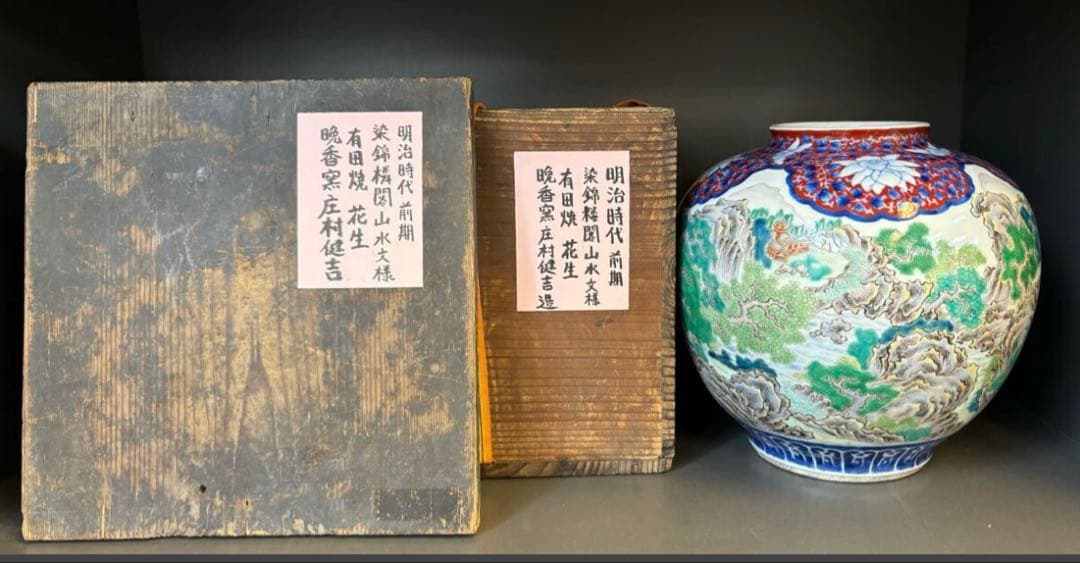 明治時代 前期
染錦楼閣山水文様
有田焼 花生
晩香窯 庄村健吉
明治時代 前期
染錦楼閣山水文様
有田焼 花生
晩香窯 庄村健吉造